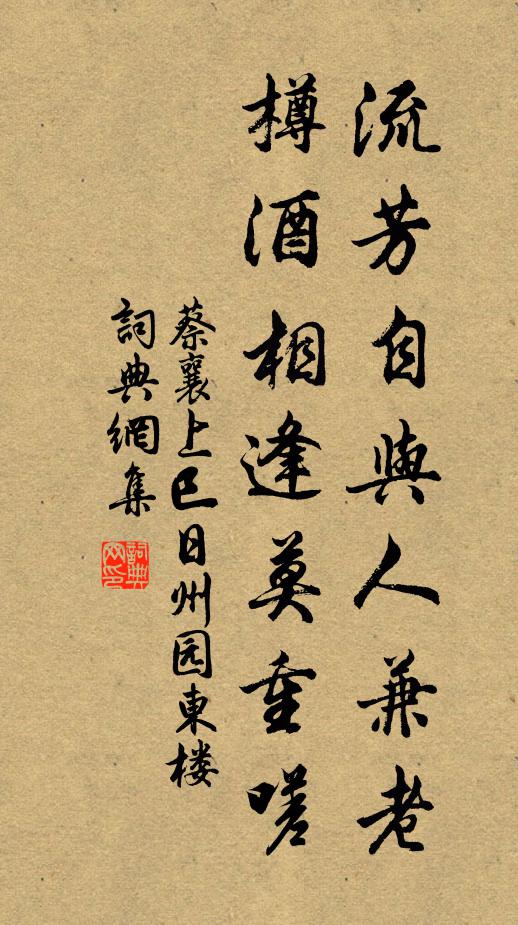 流芳自與人兼老
樽酒相逢莫重嗟
蔡襄上巳日州园東楼
詞典網集
詞典网印